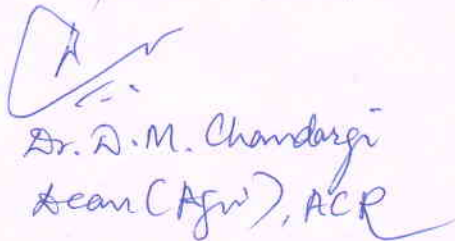 Dr. D.M. Chandargi
Dean (Agri), ACR